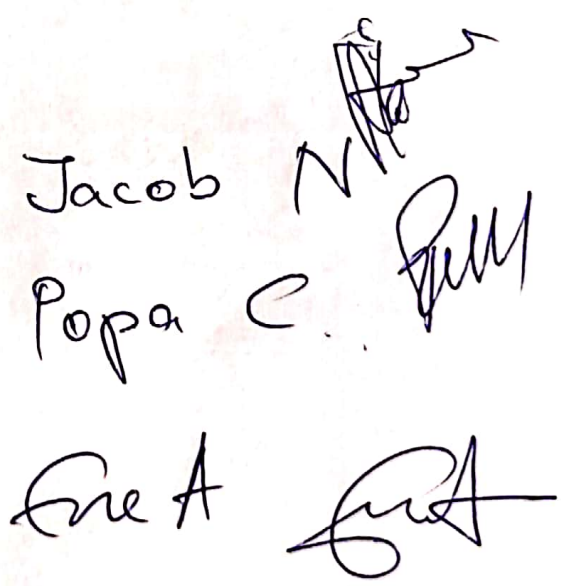 Jacob N
Popa C.
Ene A